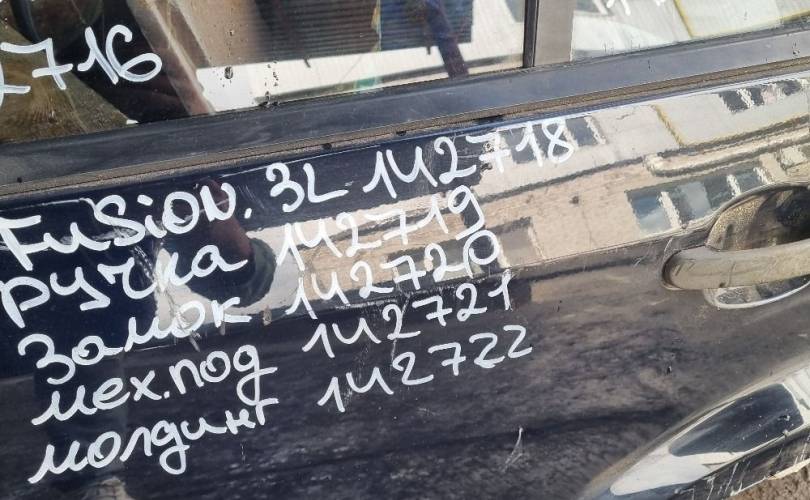 2716
FuSiON. 3L 142718
ручка 142719
Замок 142720
мех.под 142721
молдинг 142722